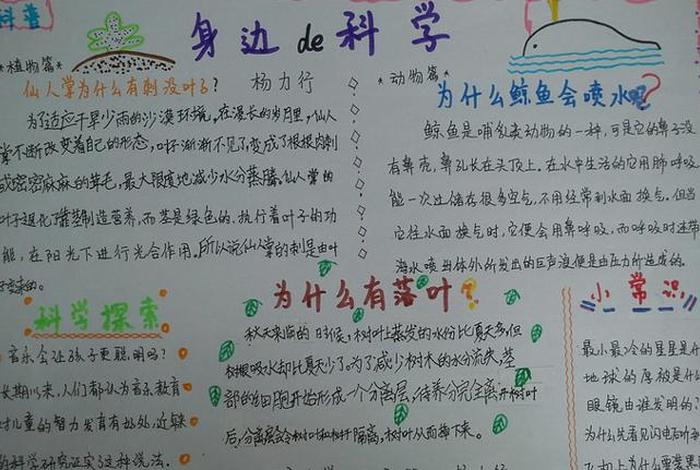 科普
身边de科学
*植物篇*
仙人掌为什么有刺没叶子?
杨力行
为了适应干旱少雨的沙漠环境。在漫长的岁月里,仙人
掌不断改变着自己的形态,叶子渐渐不见了,变成了根根肉刺
或密密麻麻的茸毛,最大限度地减少水分蒸腾。仙人掌的
叶子退化了靠茎制造营养,而茎是绿色的,执行着叶子的功
能,在阳光下进行光合作用。所以说仙人掌的刺是由叶
子变来的。
*动物篇*
为什么鲸鱼会喷水呢?
鲸鱼是哺乳类动物的一种,可是它的鼻子没
有鼻壳,鼻孔长在头顶上。在水中生活的它用肺呼吸
能一次让储存很多空气,不用经常到水面换气。但当
它往水面换气时,它便会用鼻呼吸,而呼吸时连带
海水喷出体外所发出的巨声浪便是由压力所造成的。
科学探索
音乐会让孩子更聪明吗?
长期以来,人们都认为音乐教育
对儿童的智力发育有好处,近年
的科学研究证实了这种说法。
为什么有落叶?
秋天来临的时候,树叶上蒸发的水份比夏天多,但
树根吸水却比夏天少了。为了减少树木的水分流失,茎
部的细胞开始形成一个分离层,待养分完全离开树叶
后,分离层会令树叶和枝杆隔离,树叶从而掉下来。
小常识
最小最冷的星星是什
地球的厚被是什
眼镜由谁发明的?
为什么先看见闪电后听
飞机上为什么要